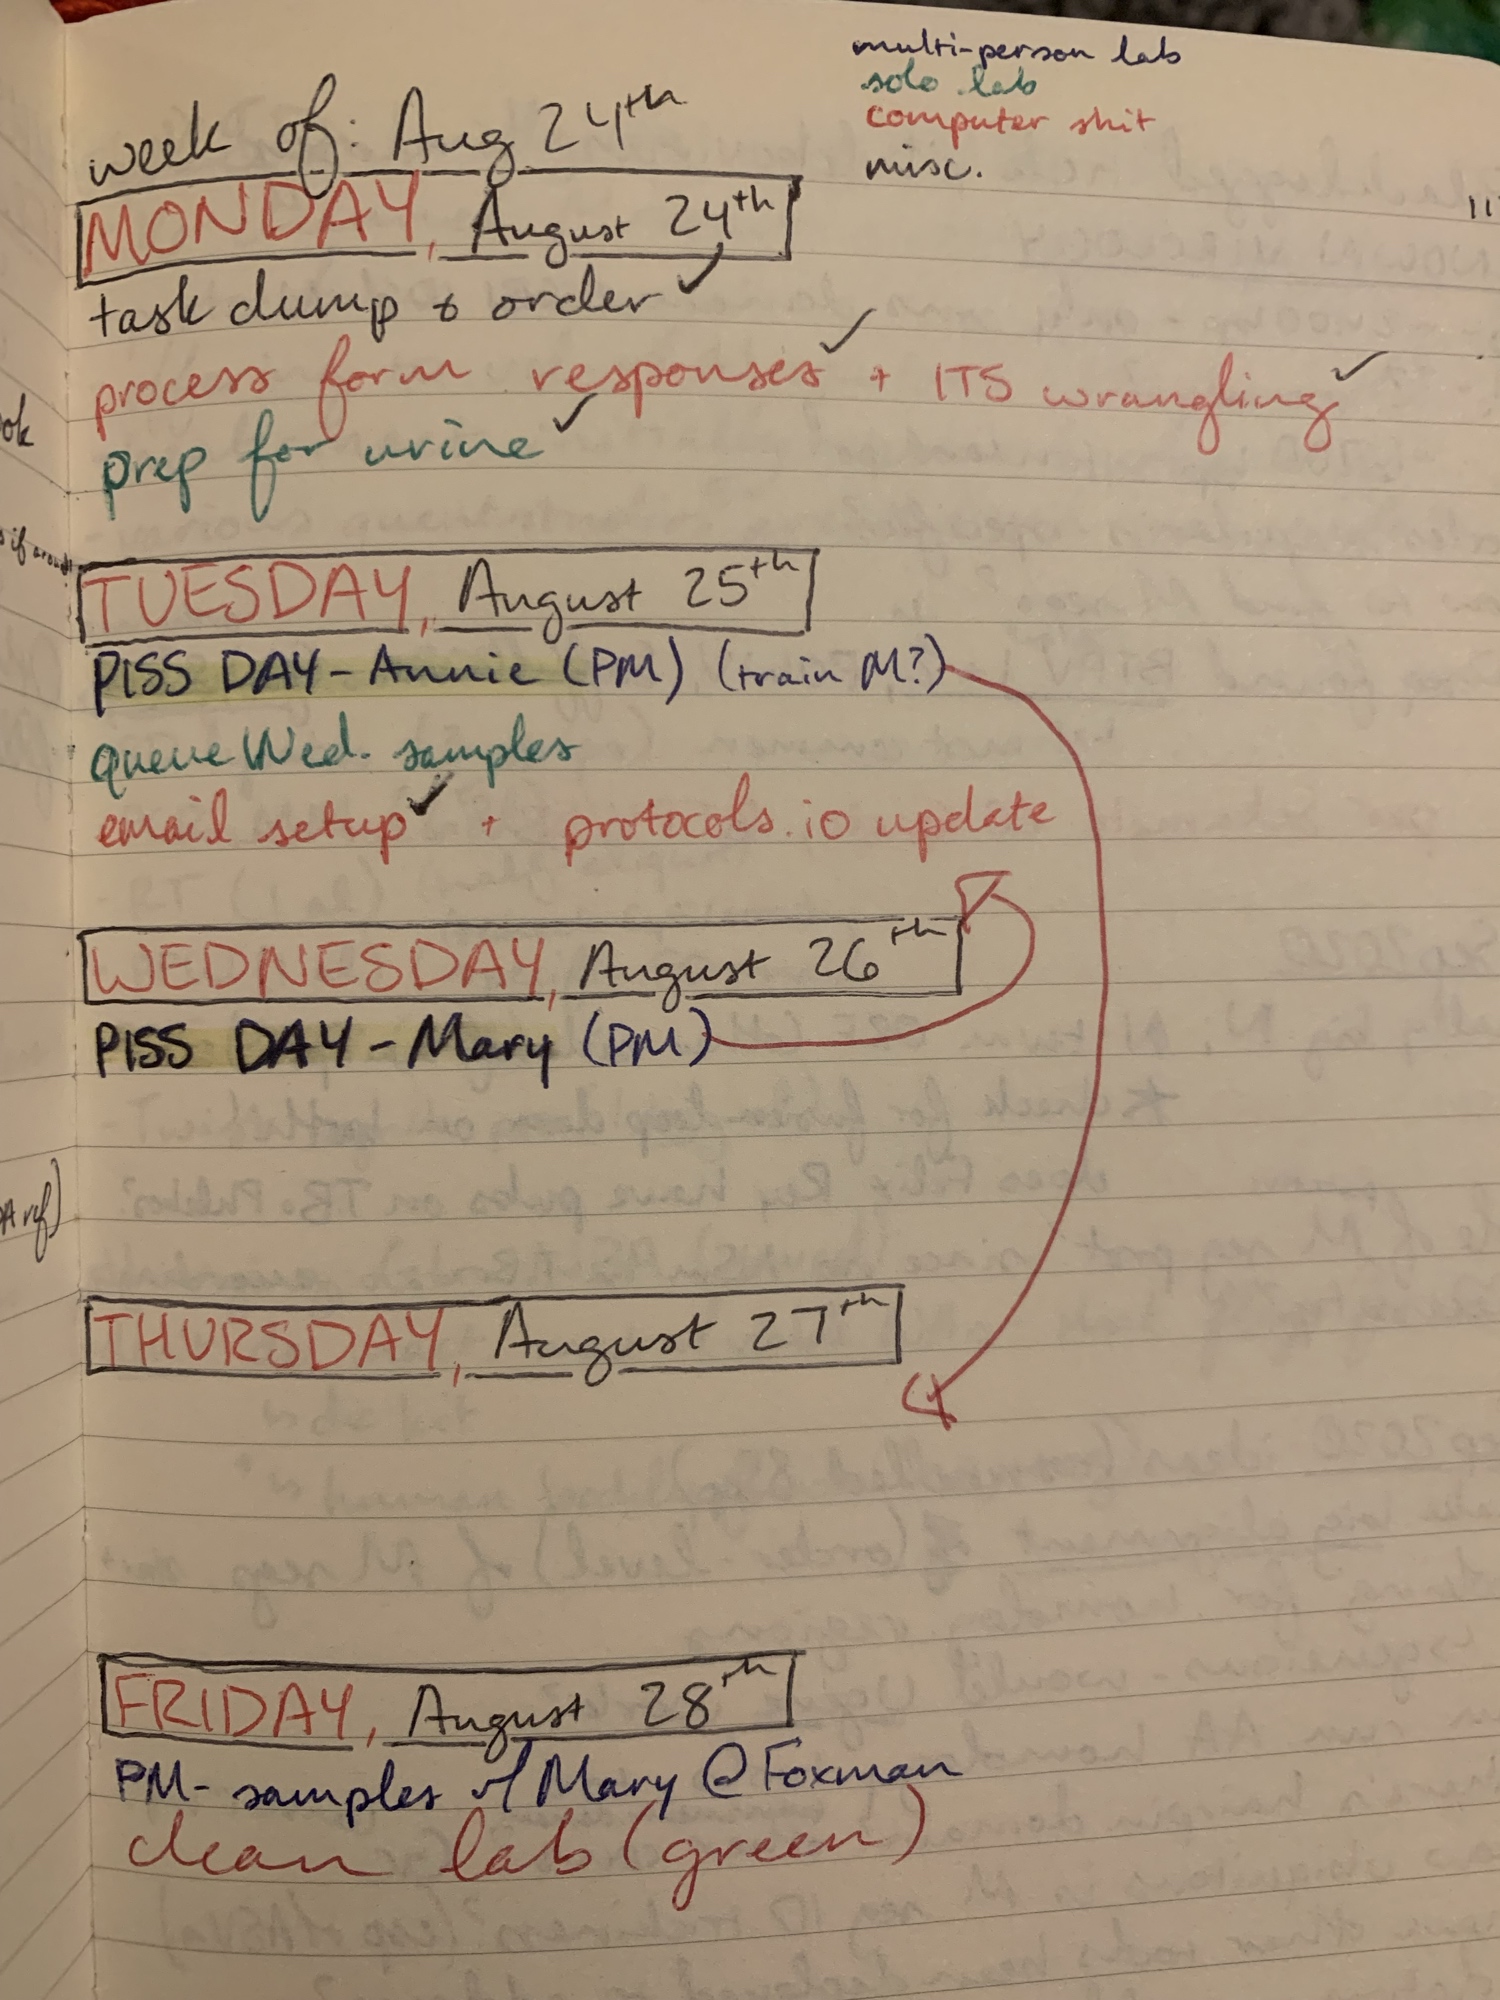 multi-person lab
solo lab
computer shit
misc.
week of: Aug 24th
MONDAY, August 24th
task dump & order ✓
process form responses ✓ + ITS wrangling ✓
prep for urine ✓
TUESDAY, August 25th
PISS DAY - Annie (PM) (train M?)
queue Wed. samples
email setup ✓ + protocols.io update
WEDNESDAY, August 26th
PISS DAY - Mary (PM)
THURSDAY, August 27th
FRIDAY, August 28th
PM - samples w/ Mary @ Foxman
clean lab (green)